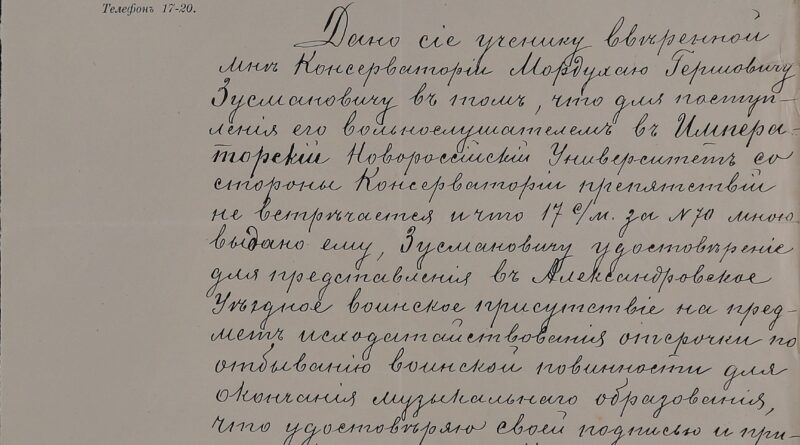 Телефонъ 17-20.
Дано сіе ученику ввѣренной
мнѣ Консерваторіи Мордухаю Гершовичу
Зусмановичу въ томъ, что для поступ-
ленія его вольнослушателемъ въ Импера-
торскій Новороссійскій Университетъ со
стороны Консерваторіи препятствій
не встрѣчается и что 17 с/м. за №70 мною
выдано ему, Зусмановичу удостовѣреніе
для представленія въ Александровское
Уѣздное воинское присутствіе на пред-
метъ исходатайствованія отсрочки по
отбыванію воинской повинности для
окончанія музыкальнаго образованія,
что удостовѣряю своей подписью и при-